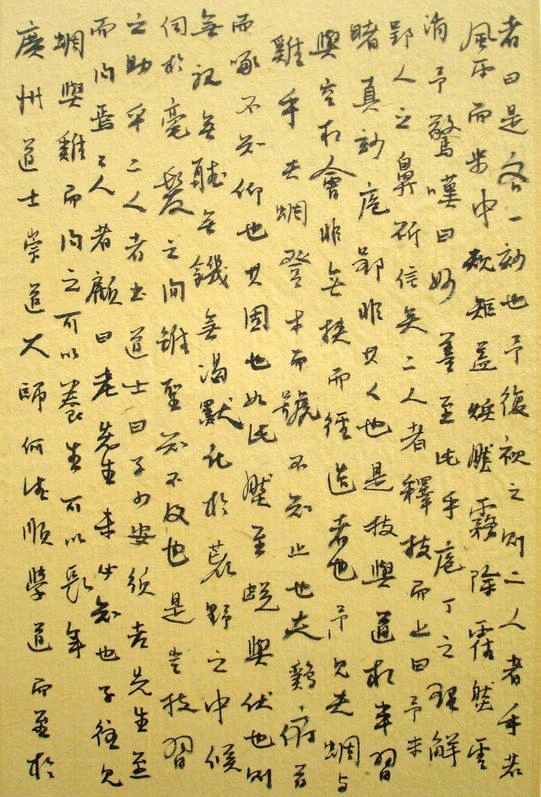 者曰是各一妙也予復視之則二人者手若
風雨而步中規矩蓋煥然霧除霍然雲
消予驚嘆曰妙蓋至此乎庖丁之理解
郢人之鼻斫信矣二人者釋技而上曰子未
睹真妙庖郢非其人也是技與道相半習
與空相會非無挾而徑造者也子見夫蜩與
雞乎夫蜩登木而號不知止也夫鷄俯首
而啄不知仰也其固也如此然至蛻與伏也則
無視無聽無饑無渴默化於荒野之中候
伺於毫髮之間雖聖知不及也是豈技習
之助乎二人者出道士曰子少安須老先生至
而問焉二人者顧曰老先生未必知也子往見
蜩與雞而問之可以養生可以長年
廣州道士崇道大師何德順學道而至於